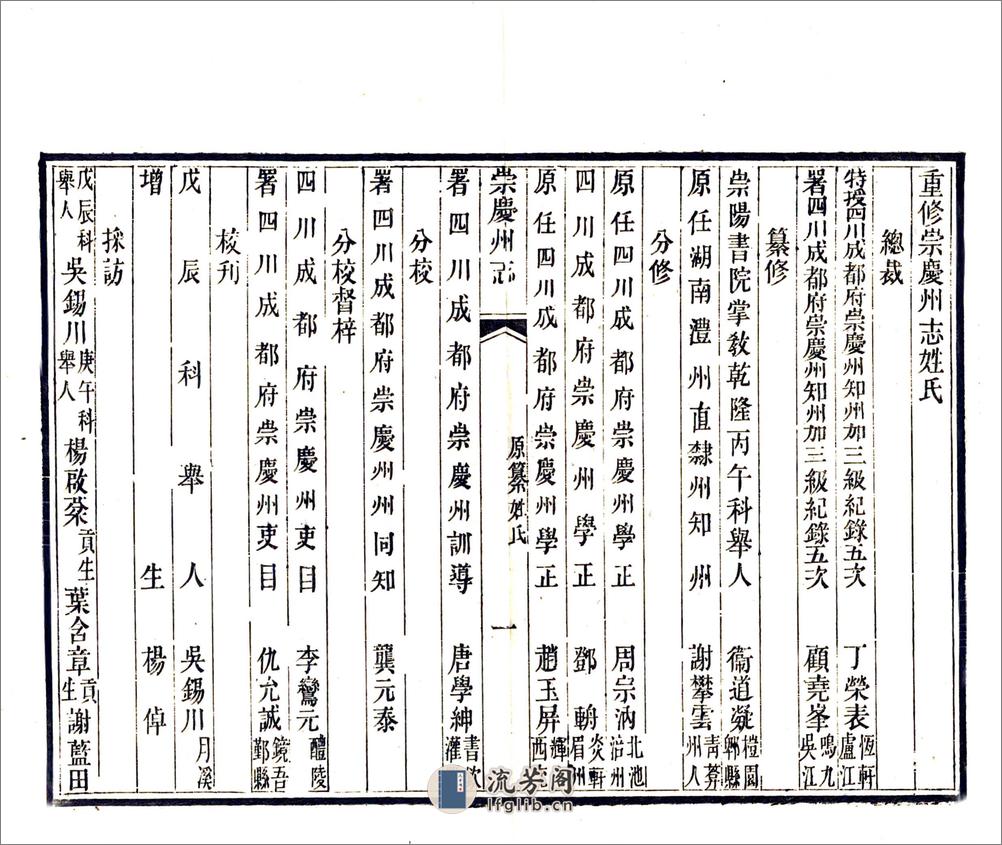 重修崇慶州志姓氏
總裁
特授四川成都府崇慶州知州加三級紀錄五次 丁榮表 恆軒 盧江
署四川成都府崇慶州知州加三級紀錄五次 顧堯峯 鳴九 吳江
纂修
崇陽書院掌敎乾隆丙午科舉人 衞道凝 榿園 郫縣
原任湖南澧州直隸州知州 謝攀雲 青莽 州人
分修
原任四川成都府崇慶州學正 周宗汭 北池 涪州
四川成都府崇慶州學正 鄧鵃 炎軒 眉州
原任四川成都府崇慶州學正 趙玉屏 輝 西充
崇慶州志 原纂姓氏 一
署四川成都府崇慶州訓導 唐學紳 書 灌
分校
署四川成都府崇慶州州同知 龔元泰
分校督梓
四川成都府崇慶州吏目 李鸞元 醴陵
署四川成都府崇慶州吏目 仇允誠 鏡吾 鄞縣
校刋
戊辰科舉人 吳錫川 月溪
增生 楊倬
採訪
戊辰科舉人 吳錫川 庚午科舉人 楊啟棻 貢生 葉含章 貢生 謝藍田
流芳阁
lfglib.cn